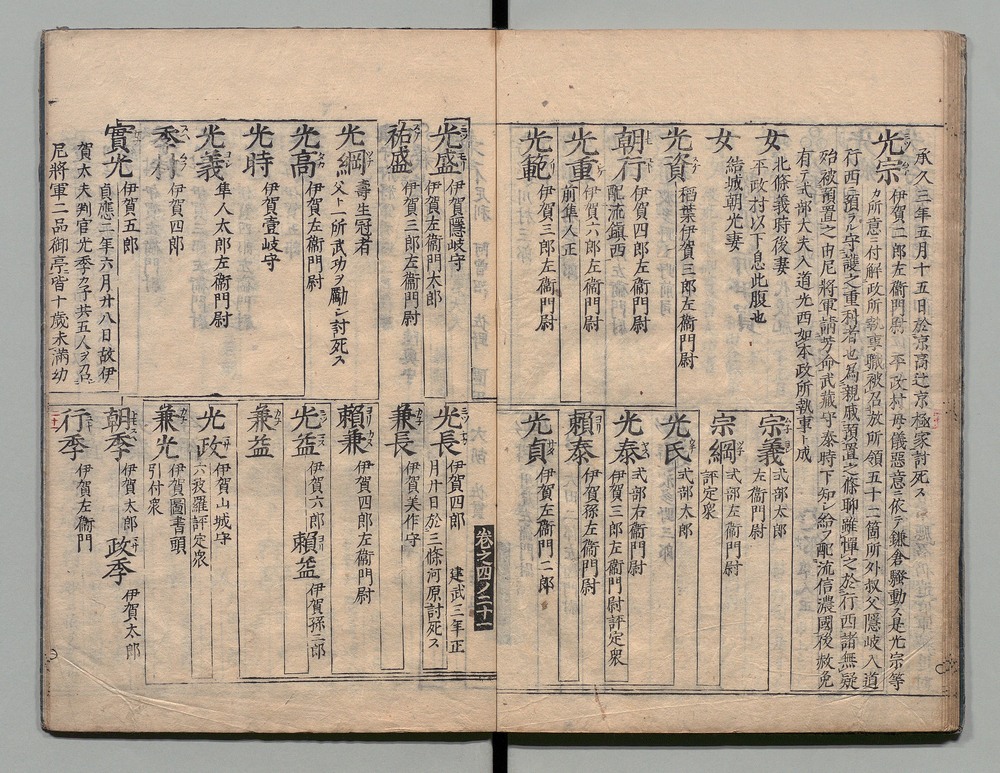 承久三年五月十五日於京高辻京極家討死ス
光宗 伊賀二郎左衞門尉 平政村母儀惡意ニ依テ鎌倉騷動ス是光宗等
カ所意ニ付解政所執事職被召放所領五十二箇所外叔父隱岐入道
行西ニ預ラル守護之重科者也為親戚預置之條聊雖憚之於行西諸無疑
殆被預置之由尼將軍請芳命武藏守泰時下知シ給フ配流信濃國後赦免
有テ式部大夫入道光西如本政所執事ト成
女 北條義時後妻
平政村以下息此腹也
女 結城朝光妻
光資 稻葉伊賀三郎左衞門尉
朝行 伊賀四郎左衞門尉
配流鎮西
光重 伊賀六郎左衞門尉
前隼人正
光範 伊賀三郎左衞門尉
宗義 式部太郎
左衞門尉
宗綱 式部左衞門尉
評定衆
光氏 式部太郎
光泰 式部右衞門尉
伊賀三郎左衞門尉評定衆
賴泰 伊賀孫左衞門尉
光貞 伊賀左衞門二郎
光盛 伊賀隱岐守
伊賀左衞門太郎
祐盛 伊賀三郎左衞門尉
光綱 壽生冠者
父ト一所武功ヲ勵シ討死ス
光高 伊賀左衞門尉
光時 伊賀壹岐守
光義 隼人太郎左衞門尉
季村 伊賀四郎
實光 伊賀五郎
貞應二年六月廿八日故伊
賀太夫判官光季カ子共五人ヲ召
尼將軍二品御亭皆十歲未滿幼
卷之四ノ二十一
光長 伊賀四郎 建武三年正
月廿日於三條河原討死ス
兼長 伊賀美作守
賴兼 伊賀四郎左衞門尉
光益 伊賀六郎 賴益 伊賀孫二郎
兼益
光政 伊賀山城守
六波羅評定衆
兼光 伊賀圖書頭
引付衆
朝季 伊賀太郎 政季 伊賀太郎
行季 伊賀左衞門